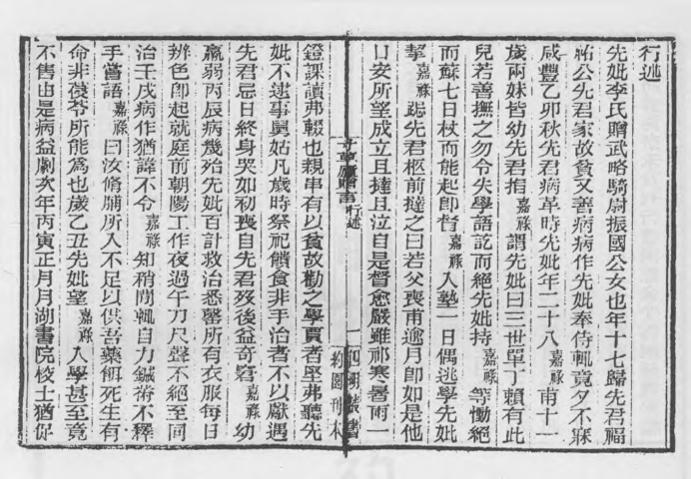 行述
先妣李氏贈武略騎尉振國公女也年十七歸先君福
祐公先君家故貧又善病病作先妣奉侍輒竟夕不寐
咸豐乙卯秋先君病革時先妣年二十八嘉祿甫十一
歲兩妹皆幼先君指嘉祿謂先妣曰三世單丁賴有此
兒若善撫之勿令失學語訖而絕先妣持嘉祿等慟絕
而蘇七日杖而能起卽督嘉祿入塾一日偶逃學先妣
挈嘉祿跽先君柩前撻之曰若父喪甫逾月卽如是他
日安所望成立且撻且泣自是督愈嚴雖祁寒暑雨一
行述
一
四明叢書
約園刊本
鐙課讀弗輟也親串有以貧故勸之學賈者堅弗聽先
妣不逮事舅姑凡歲時祭祀饋食非手治者不以獻遇
先君忌日終身哭如初喪自先君歿後益奇窘嘉祿幼
羸弱丙辰病幾殆先妣百計救治悉罄所有衣服每日
辨色卽起就庭前朝陽工作夜過午刀尺聲不絕至同
治壬戌病作猶諱不令嘉祿知稍閒輒自力鍼黹不釋
手嘗語嘉祿曰汝脩脯所入不足以供吾藥餌死生有
命非葠苓所能為也歲乙丑先妣望嘉祿入學甚至竟
不售由是病益劇次年丙寅正月月湖書院校士猶促